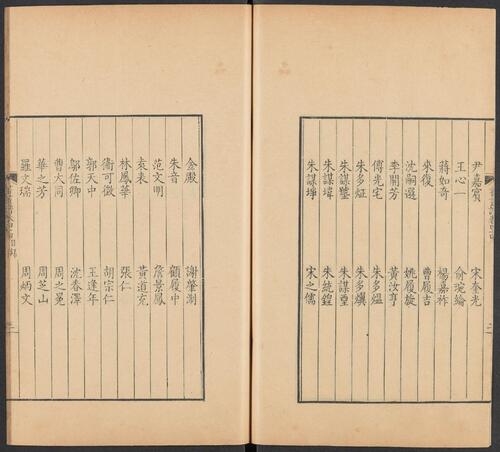 尹嘉賓 宋奎光
王心一 俞琬綸
蔣如奇 楊嘉祚
來復 曹履吉
沈嗣選 姚履旋
李開芳 黃汝亨
傅光宅 朱多熅
朱多熅 朱多㸅
朱謀㙔 朱謀㙔
朱謀㙔 朱統鍠
朱謀㙔 宋之儒
金殿 謝肇淛
朱音 顧履中
范文明 詹景鳳
袁表 黃道充
林鳳華 張仁
衛可徵 胡宗仁
郭天中 王逢年
鄔佐卿 沈春澤
曹大同 周之冕
華之芳 周芝山
羅文瑞 周炳文